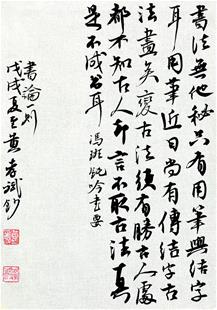 書法無他秘只有用筆與結字
耳用筆近日尚有傳結字古
法盡矣變古法須有勝古人處
都不知古人却言不取古法真
是不成書耳 馮班鈍吟書要
書論一則
戊戌夏至黃斌鈔